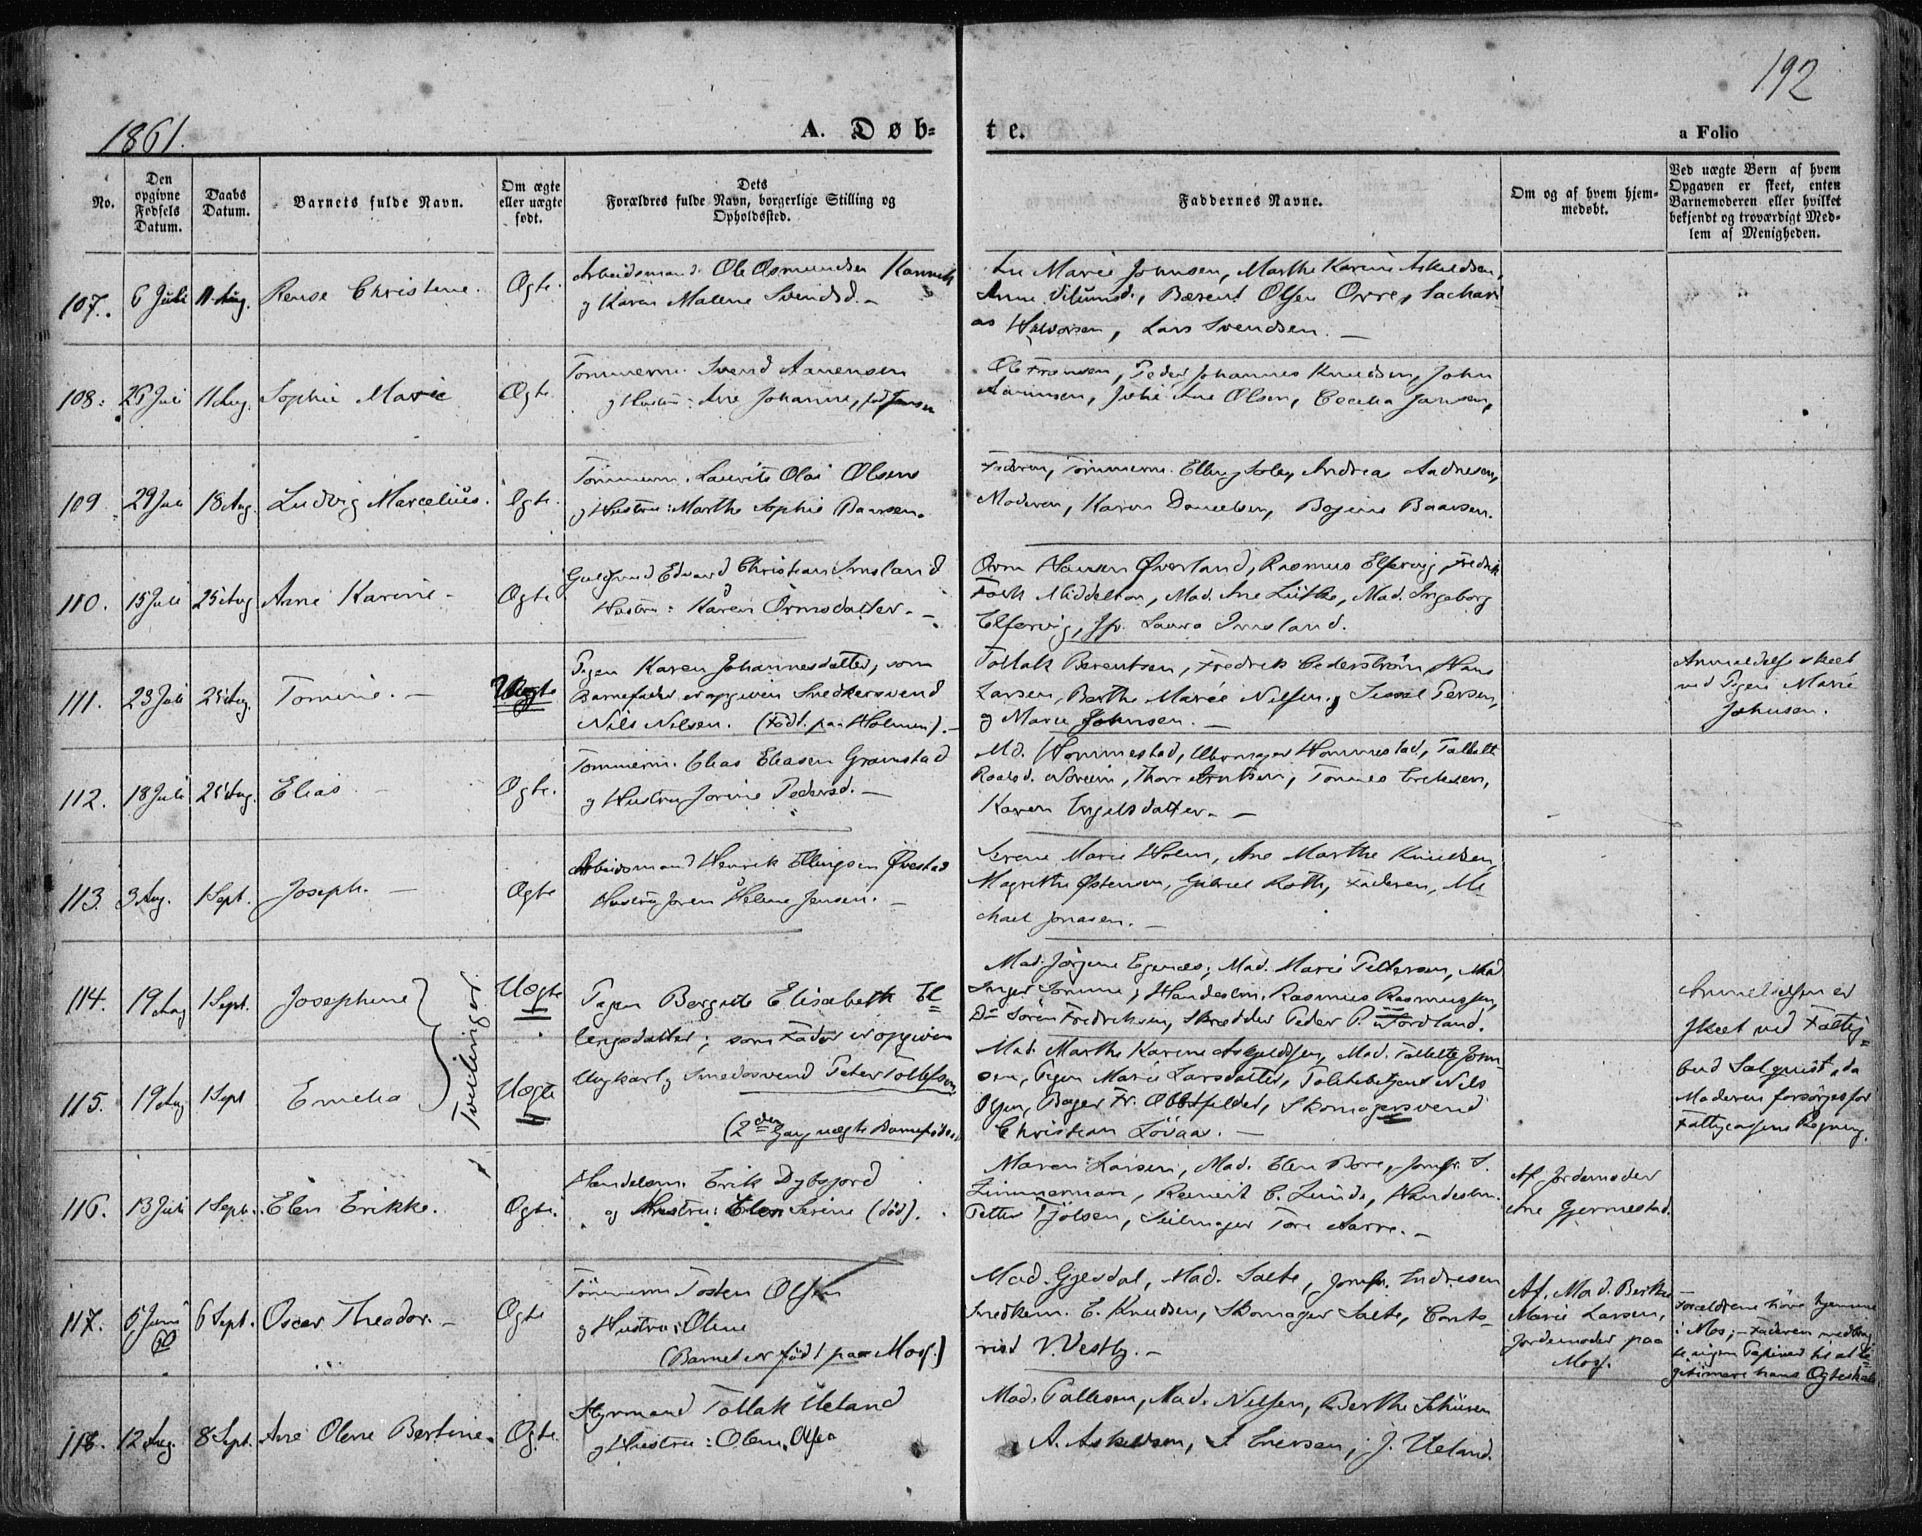 192
1861.
A. Døb-
te.
a Folio
No.
Den opgivne Fødsels Datum.
Daabs Datum.
Barnets fulde Navn.
Om ægte eller uægte født.
Dets
Forældres fulde Navn, borgerlige Stilling og
Opholdssted.
Faddernes Navne.
Om og af hvem hjem-
medøbt.
Ved uægte Børn af hvem
Opgaven er skeet, enten
Barnemoderen eller hvilket
bekjendt og troværdigt Med-
lem af Menigheden.
107. 6 Juli 11 Aug. Christine. Ægte.
Arbeidsmand Ole Osmundsen
og Karen Malene Svendsd. -
Marie Johnsen, Marthe Karine Askeldsen,
Anne Berent Olsen Orre, Sachari
as Halvorsen, Lars Svendsen. -
108. 26 Juli 11 Aug. Sophie Marie Ægte
Tømmerm. Svend Aanensen
og Hustru: Ane Johanne, född Jansen
Ole Fransen, Peder Johannes Knudsen, John
Aanensen, Ane Olsen, Cecilia Jansen,
109. 29 Juli 18 Aug. Ludvig Marcelius. Ægte.
Tømmerm. Laurits Olai Olsen
og Hustru: Marthe Sophie Baarsen.
Faderen, Tømmerm. Andreas Andresen,
Moderen, Karen Danielsen, Baarsen.
110. 15 Juli 25 Aug. Anne Karine - Ægte
Guldsmed Edvard Christian Imsland
Hustru: Karen Ormsdatter. -
Orm Hansen Øverland, Rasmus Elfervig, Fredrik
Middelton, Mad. Ane Lütke, Mad. Ingeborg
Elfervig, Jfr. Laura Imsland.
111. 23 Juli 25 Aug. Tomine. - Uægte
Pigen Karen Johannesdatter, som
Barnefader er opgiven Snedkersvend
Nils Nilsen. (Födt paa Holmen). -
Tollak Berentsen, Fredrik Cederström, Hans
Larsen, Berthe Marie Nilsen, Sissel Persen,
og Marie Johnsen. -
Anmeldelse skeet
ved Pigen Marie
Johnsen.
112. 18 Juli 25 Aug. Elias - Ægte.
Tømmerm. Elias Eliasen Gramstad
og Hustru Jorine Pedersd. -
Md. Hommestad, Uhrmager Hommestad,
Tønnes Eriksen,
Karen Engelsdatter. -
113. 3 Aug. 1 Sept. Joseph. - Ægte
Arbeidsmand Henrik Ellingsen
Hustru Joren Helene Jensen. -
Serene Marie Holm, Ane Marthe Knudsen,
Magrethe Østensen, Gabriel Roth, Faderen, Mi
chael Jonasen. -
114. 19 Aug 1 Sept. Josephine Uægte
Tvillinger.
Pigen Bergite Elisabeth El=
lingsdatter; som Fader er opgiven
Ungkarl og Smedesvend Peter Tollefsen
(2den Gang uægte Barnefödsel)
Mad. Jørgine Egenæs, Mad. Marie Pettersen, Mad
Inger Handelsm. Rasmus Rasmussen,
Do Sören Fredriksen, Skredder Peder P. Fordland.
Anmeldelsen er
skeet ved Fattig=
bud Salquist, da
Moderen forsørges for
Fattigcassens Regning.
115. 19 Aug 1 Sept Emelia Uægte
Mad. Marthe Karine Askeldsen, Mad. Tallette John
sen, Pigen Marie Larsdatter, Politibetjent Nils
Olsen, Bager Fr. Obstfelder, Skomagersvend
Christian Lövaas. -
116. 13 Juli 1 Sept. Elen Erikke. Ægte.
Handelsm. Erik Dybsjord
og Hustru: Elen Serine (död).
Maren Larsen, Mad. Elen Bore, Jomfr. S.
Zimmerman, Reinert C. Lunde, Handelsm.
Petter Tjölsen, Seilmager Tore Aarre. -
Af Jordemoder
Ane Gjermestad.
117. 5 Juni 60 6 Sept. Oscar Theodor. - Ægte
Tömmerm Tosten Olsen
og Hustru: Olene
(Barnet er födt paa Moss.)
Mad. Gjesdal, Mad. Salte, Jomfr. Endresen
Snedkerm. E. Knudsen, Skomager Salte, Conto-
rist V. Vestby. -
Af Mad. Berthe
Marie Larsen,
Jordemoder paa
Moss.
Forældrene höre hjemme
i Mos; - Faderen medbrag
te ingen Papirer til at le=
gitimere hans Ægteskab.
118. 12 Aug. 8 Sept. Ane Olene Bertine. Ægte.
Styrmand Tollak Ueland
og Hustru: Olene Olsen
Mad. Pallesen, Mad. Nilsen, Berthe
A. Askeldsen, S. Iversen, J. Ueland.